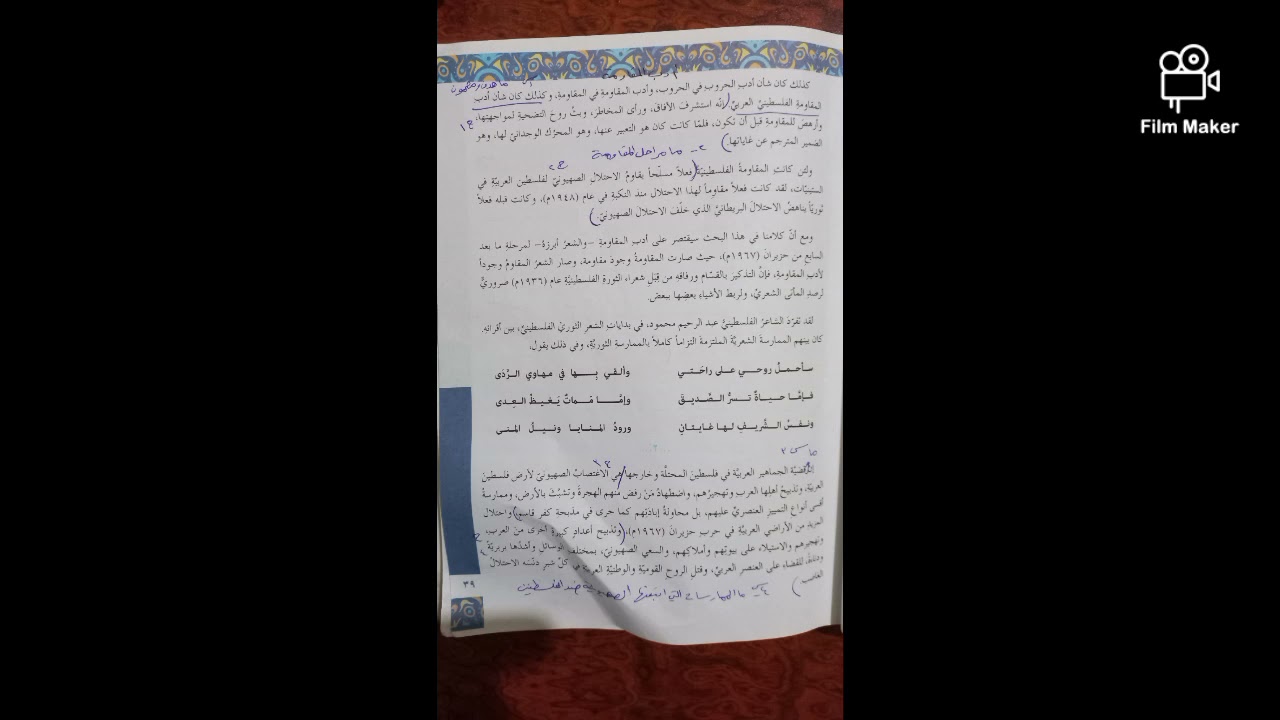 أدب المقاومة
كذلك كان شأن أدب الحروب في الحروب، وأدب المقاومة في المقاومة، وكذلك كان شأن أدب
المقاومة الفلسطينيّ العربيّ (إنّه استشرف الآفاق، ورأى المخاطر، وبثّ روح التضحية لمواجهتها،
وأرهصَ للمقاومةِ قبل أن تكون، فلمّا كانت كان هو التعبير عنها، وهو المحرّك الوجدانيّ لها، وهو
الضمير المترجم عن غاياتها.)
٢- ما مراحل المقاومة
ولئن كانتِ المقاومةُ الفلسطينيّة (فعلاً مسلّحاً يقاومُ الاحتلال الصهيونيّ لفلسطين العربيّة في
الستينيّات، لقد كانت فعلاً مقاوماً لهذا الاحتلال منذ النكبةِ في عام (١٩٤٨م)، وكانت قبله فعلاً
ثوريّاً يناهضُ الاحتلالَ البريطانيَّ الذي خلّف الاحتلالَ الصهيونيّ.)
ومع أنّ كلامنا في هذا البحث سيقتصر على أدبِ المقاومةِ -والشعرُ أبرزهُ- لمرحلةِ ما بعد
السابع من حزيرانَ (١٩٦٧م)، حيث صارت المقاومةُ وجودَ مقاومة، وصار الشعرُ المقاومُ وجوداً
لأدبِ المقاومةِ، فإنَّ التذكير بالقسّام ورفاقهِ من قِبَلِ شعراء الثورةِ الفلسطينيّةِ عام (١٩٣٦م) ضروريٌّ
لرصدِ المأتى الشعريّ، ولربط الأشياءِ بعضِها ببعض.
لقد تفرّدَ الشاعرُ الفلسطينيُّ عبد الرحيم محمود، في بدايات الشعرِ الثوريّ الفلسطينيّ، بين أقرانه.
كان بينهم الممارسةَ الشعريّةَ الملتزمةَ التزاماً كاملاً بالممارسة الثوريّة، وفي ذلك يقول:
سـأحمـلُ روحـي علـى راحَـتـي وألقـي بِــهـا في مـهاوي الـرَّدَى
فـإمَّـا حـيـاةٌ تـسـرُّ الـصَّـديـقَ وإمَّــا مَـمـاتٌ يَـغـيـظُ الـعِـدى
ونـفـسُ الـشَّـريـفِ لـهـا غـايـتـانِ ورودُ المـنـايـا ونـيـلُ المـنـى
س٣ ما
قضيّة الجماهير العربيّة في فلسطين المحتلّة وخارجها هي الاغتصابُ الصهيونيّ لأرض فلسطين
العربيّة، وتذبيحُ أهلِها العرب وتهجيرُهم، واضطهادُ مَنْ رفضَ منهم الهجرةَ وتشبّثَ بالأرض، وممارسةُ
أقسى أنواع التمييز العنصريّ عليهم، بل محاولةُ إبادتهم كما جرى في مذبحة كفر قاسم) واحتلال
المزيد من الأراضي العربيّة في حرب حزيرانَ (١٩٦٧م)، (وتذبيح أعدادٍ كبيرةٍ أخرى من العرب،
وتهجيرهم والاستيلاء على بيوتهم وأملاكِهم، والسعي الصهيونيّ، بمختلف الوسائل وأشدّها بربريّةً
للقضاء على العنصر العربيّ، وقتلِ الروح القوميّة والوطنيّة العربيّة في كلّ شبرٍ دنّسَه الاحتلالُ
الغاصب.
س٤ ما الممارسات التي اتبعتها ضد الفلسطينيين
٣٩
Film Maker